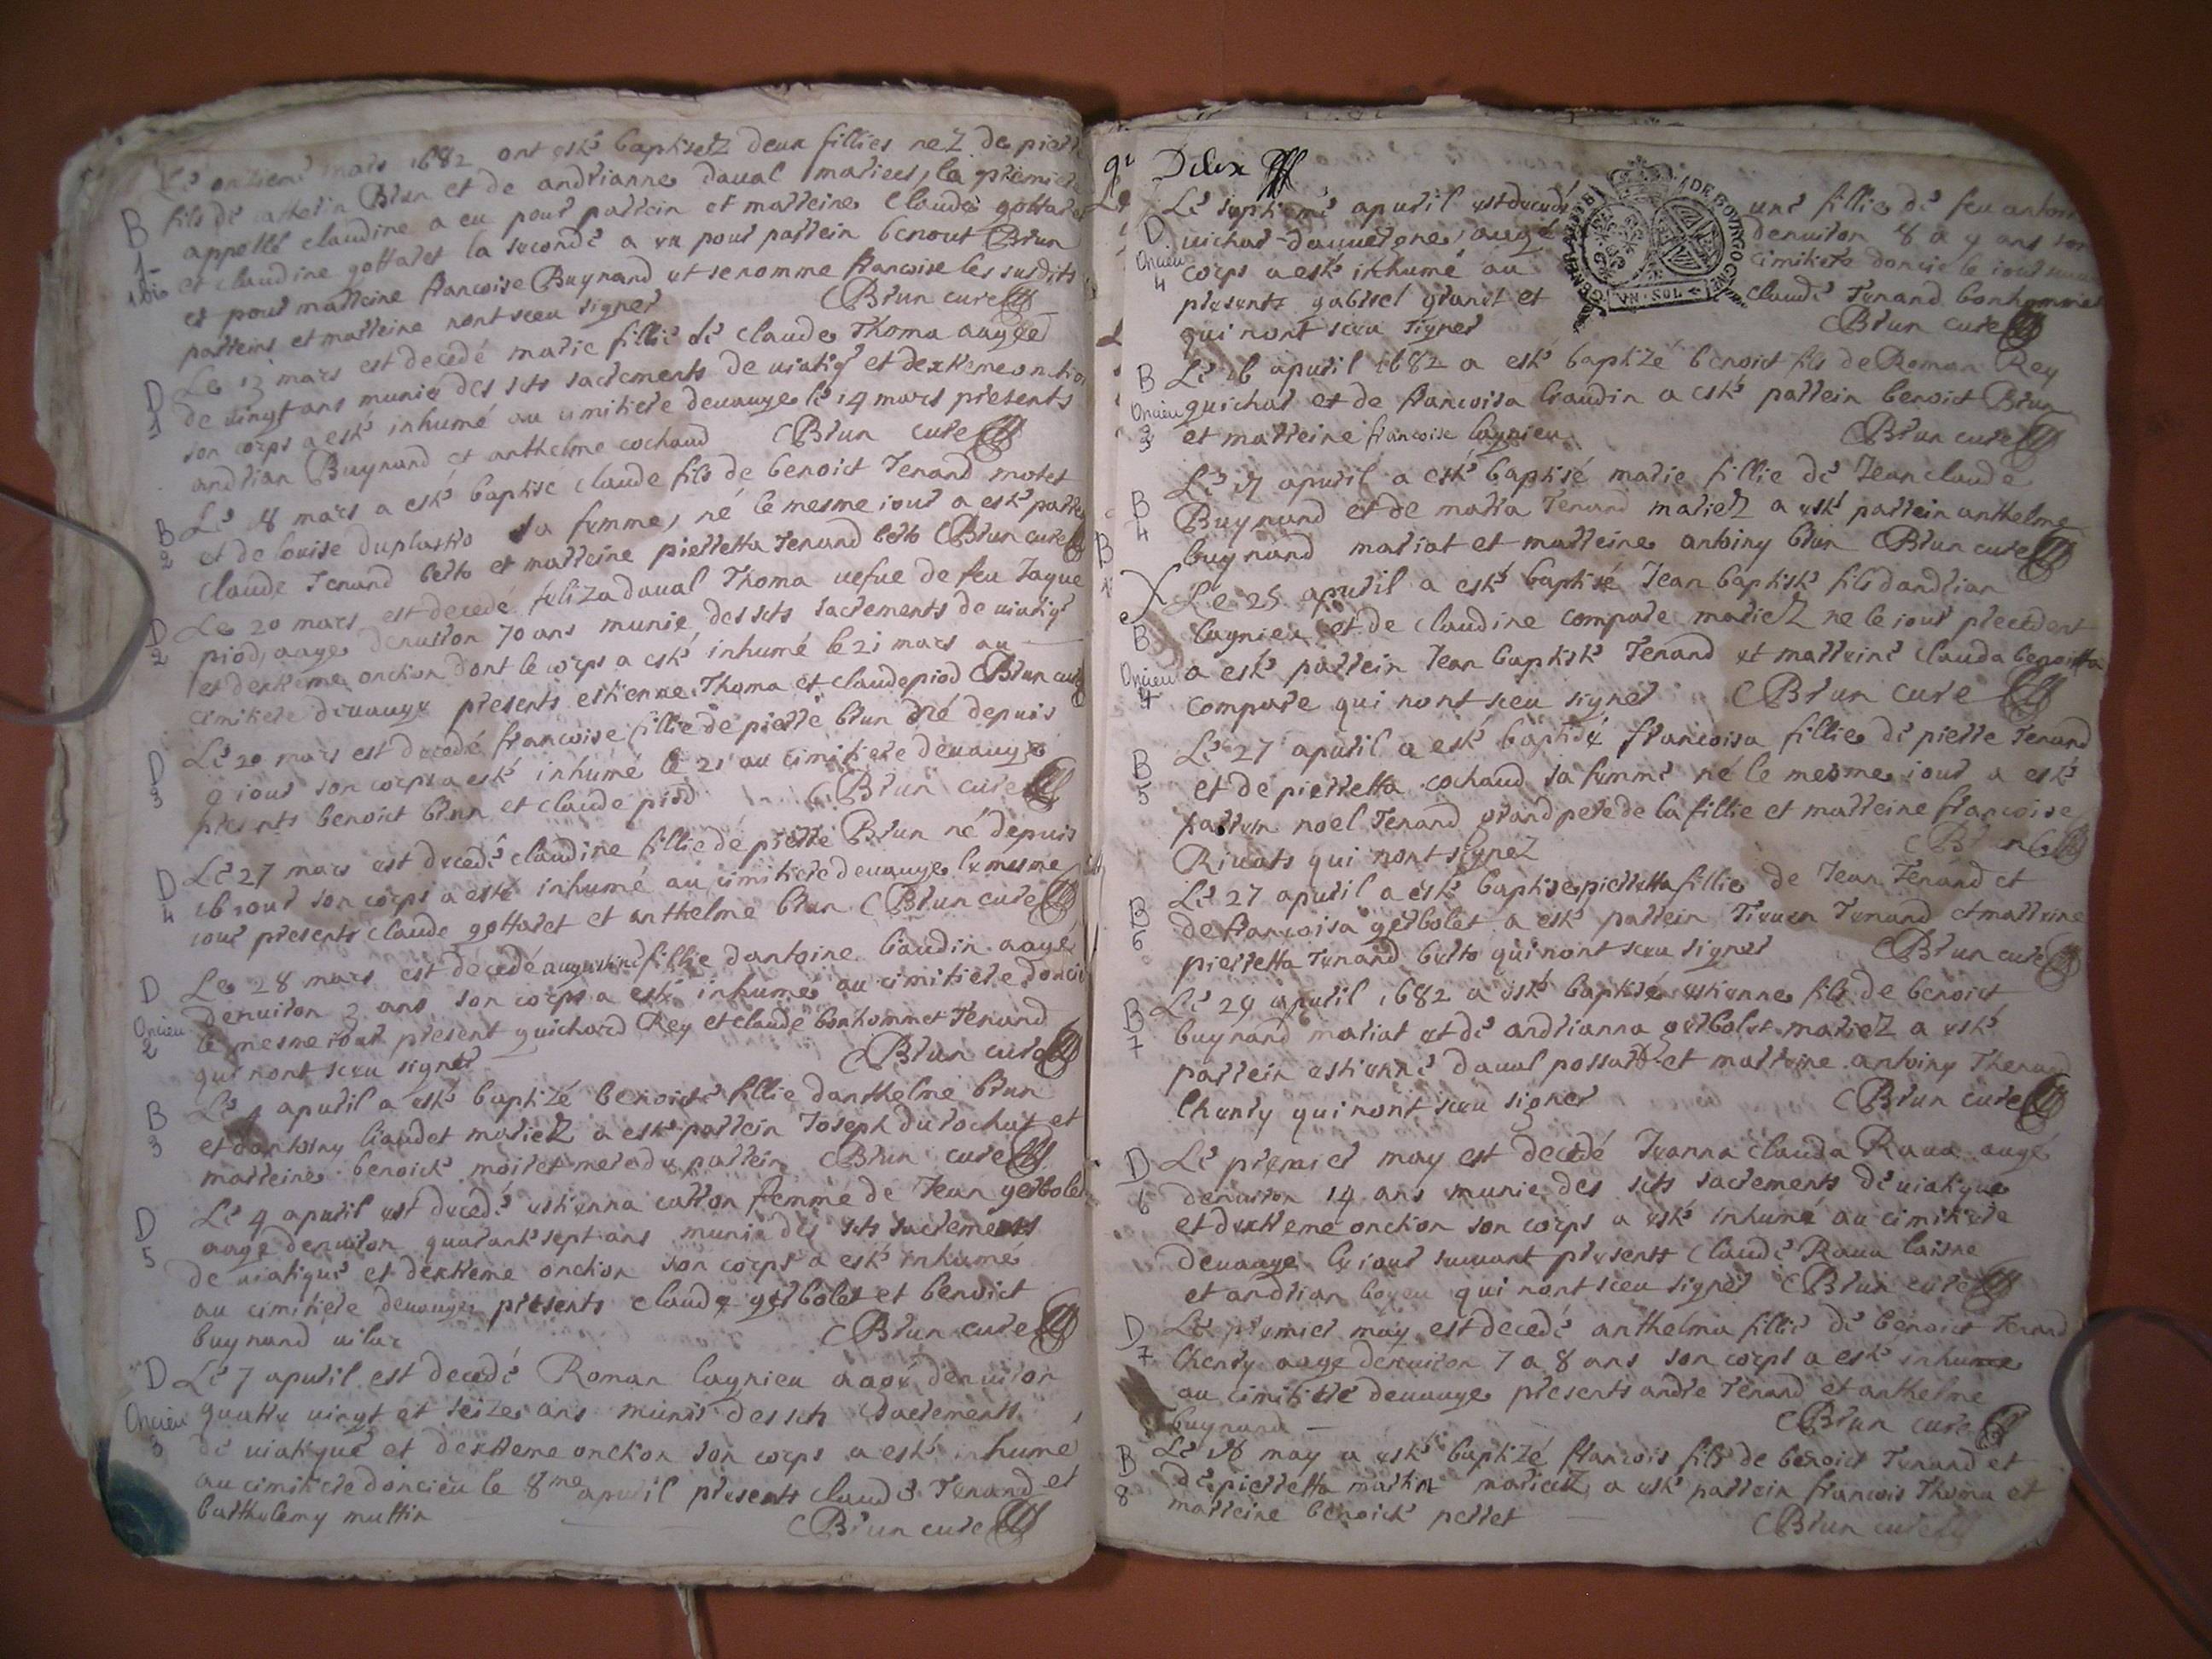 Le onzieme mars 1682 ont esté baptisetz deux fillies nez de pierre
fils de catherin Brun et de andrianne daual mariees, la premiere
B
1
1 bis
appellé claudine a eu pour parrein et marreine Claude gottaret
et claudine gottaret la seconde a eu pour parrein benout Brun
et pour marreine francoise Buynand et se nomme francoise les susdits
parreins et marreine nont sceu signer Brun cure
D
1
Le 13 mars est decedé marie fillie de claude Thoma augee
de uingt ans munie des sets sacrements de uiatiq et dextreme onction
son corps a esté inhumé au cimitiere deuauge le 14 mars presents
andrian Buynand et anthelme cochaud Brun cure
B
2
Le 18 mars a esté baptise claude fils de benoict Tenand motet
et de louise duplastro sa femme, né le mesme iour a esté parrein
claude Tenand berto et marreine pierretta Tenand berto Brun cure
D
2
Le 20 mars est decedé feliza daual Thoma uefue de feu Jaque
piod, auge denuiron 70 ans munie des sets sacrements de uiatiq
et dextreme onction dont le corps a esté inhumé le 21 mars au
cimitiere deuauge presents estienne Thoma et claude piod Brun cure
D
3
Le 20 mars est decedé francoise fillie de pierre brun né depuis
9 iour son corps a esté inhumé le 21 au cimitiere deuauge
presents benoict brun et claude piod Brun cure
D
4
Le 27 mars est decedé claudine fillie de pierre Brun né depuis
16 iour son corps a esté inhumé au cimitiere deuauge le mesme
iour presents claude gottaret et anthelme brun Brun cure
D
Oncieu
2
Le 28 mars est decedé fillie dantoine baudin augé
denuiron 3 ans son corps a esté inhumé au cimitiere doncieu
le mesme iour present guichard Rey et claude bonhommet Tenand
qui nont sceu signer Brun cure
B
3
Le 4 apuril a esté baptizé benoicte fillie danthelme brun
et dantoiny liaudet mariez a esté parrein Joseph durochat et
marreine benoicte moiret mere du parrein Brun cure
D
5
Le 4 apuril est decedé estienna carron femme de Jean gerbolet
auge denuiron quarante sept ans munie des sets sacrements
de uiatique et dextreme onction son corps a esté inhumé
au cimitiere deuauge presents claude gerbolet et benoict
buynand Brun cure
D
Oncieu
3
Le 7 apuril est decedé Roman lagnieu aagé denuiron
quatre uingt et seize ans muni des sets sacrements
de uiatique et dextreme onction son corps a esté inhumé
au cimitiere doncieu le 8me apuril presents claude Tenand et
barthelemy muttin Brun cure
Deux
D
Oncieu
4
Le septieme apuril est decedé une fillie de feu anthoine
uichat dauuergne, augé denuiron 8 a 9 ans son
corps a esté inhumé au cimitiere doncieu le iour suiuant
presents gabriel granet et claude Tenand bonhommet
qui nont sceu signer Brun cure
GENERALITE DE BOVRGOGNE
VN SOL
B
Oncieu
3
Le 16 apuril 1682 a esté baptizé benoict fils de Roman Rey
guichar et de francoisa liaudin a esté parrein benoict Brun
et marreine francoise lagnieu Brun cure
B
4
Le 17 apuril a esté baptisé marie fillie de Jean claude
Buynand et de marra Tenand mariez a esté parrein anthelme
buynand mariat et marreine antoiny brun Brun cure
X
B
Oncieu
4
Le 25 apuril a esté baptisé Jean baptiste fils dandrian
lagnieu et de claudine compare mariez ne le iour precedent
a esté parrein Jean baptiste Tenand et marreine clauda benoitta
compare qui nont sceu signer Brun cure
B
5
Le 27 apuril a esté baptisé francoisa fillie de pierre Tenand
et de pierretta cochaud sa femme né le mesme iour a esté
parrein noel Tenand grand pere de la fillie et marreine francoise
Riuats qui nont signez
B
6
Le 27 apuril a esté baptise pierretta fillie de Jean Tenand et
de francoisa gerbolet a esté parrein Tenand et marreine
pierretta Tenand berto qui nont sceu signer Brun cure
B
7
Le 29 apuril 1682 a esté baptisé estienne fils de benoict
buynand mariat et de andrianna gerbolet mariez a esté
parrein estienne daual possard et marreine antoiny Thenand
Charly qui nont sceu signer Brun cure
D
6
Le premier may est decedé Jeanna clauda Raua augé
denuiron 14 ans munie des sets sacrements de uiatique
et dextreme onction son corps a esté inhumé au cimitiere
deuauge le iour suiuant presents claude Raua laisne
et andrian boyeu qui nont sceu signer Brun cure
D
7
Le premier may est decedé anthelma fillie de benoict Tenand
Charly auge denuiron 7 a 8 ans son corps a esté inhume
au cimitiere deuauge presents andre Tenand et anthelme
buynand Brun cure
B
8
Le 16 may a esté baptizé francois fils de benoict Tenand et
de pierretta martin mariez a esté parrein francois Thoma et
marreine benoicte perret Brun cure